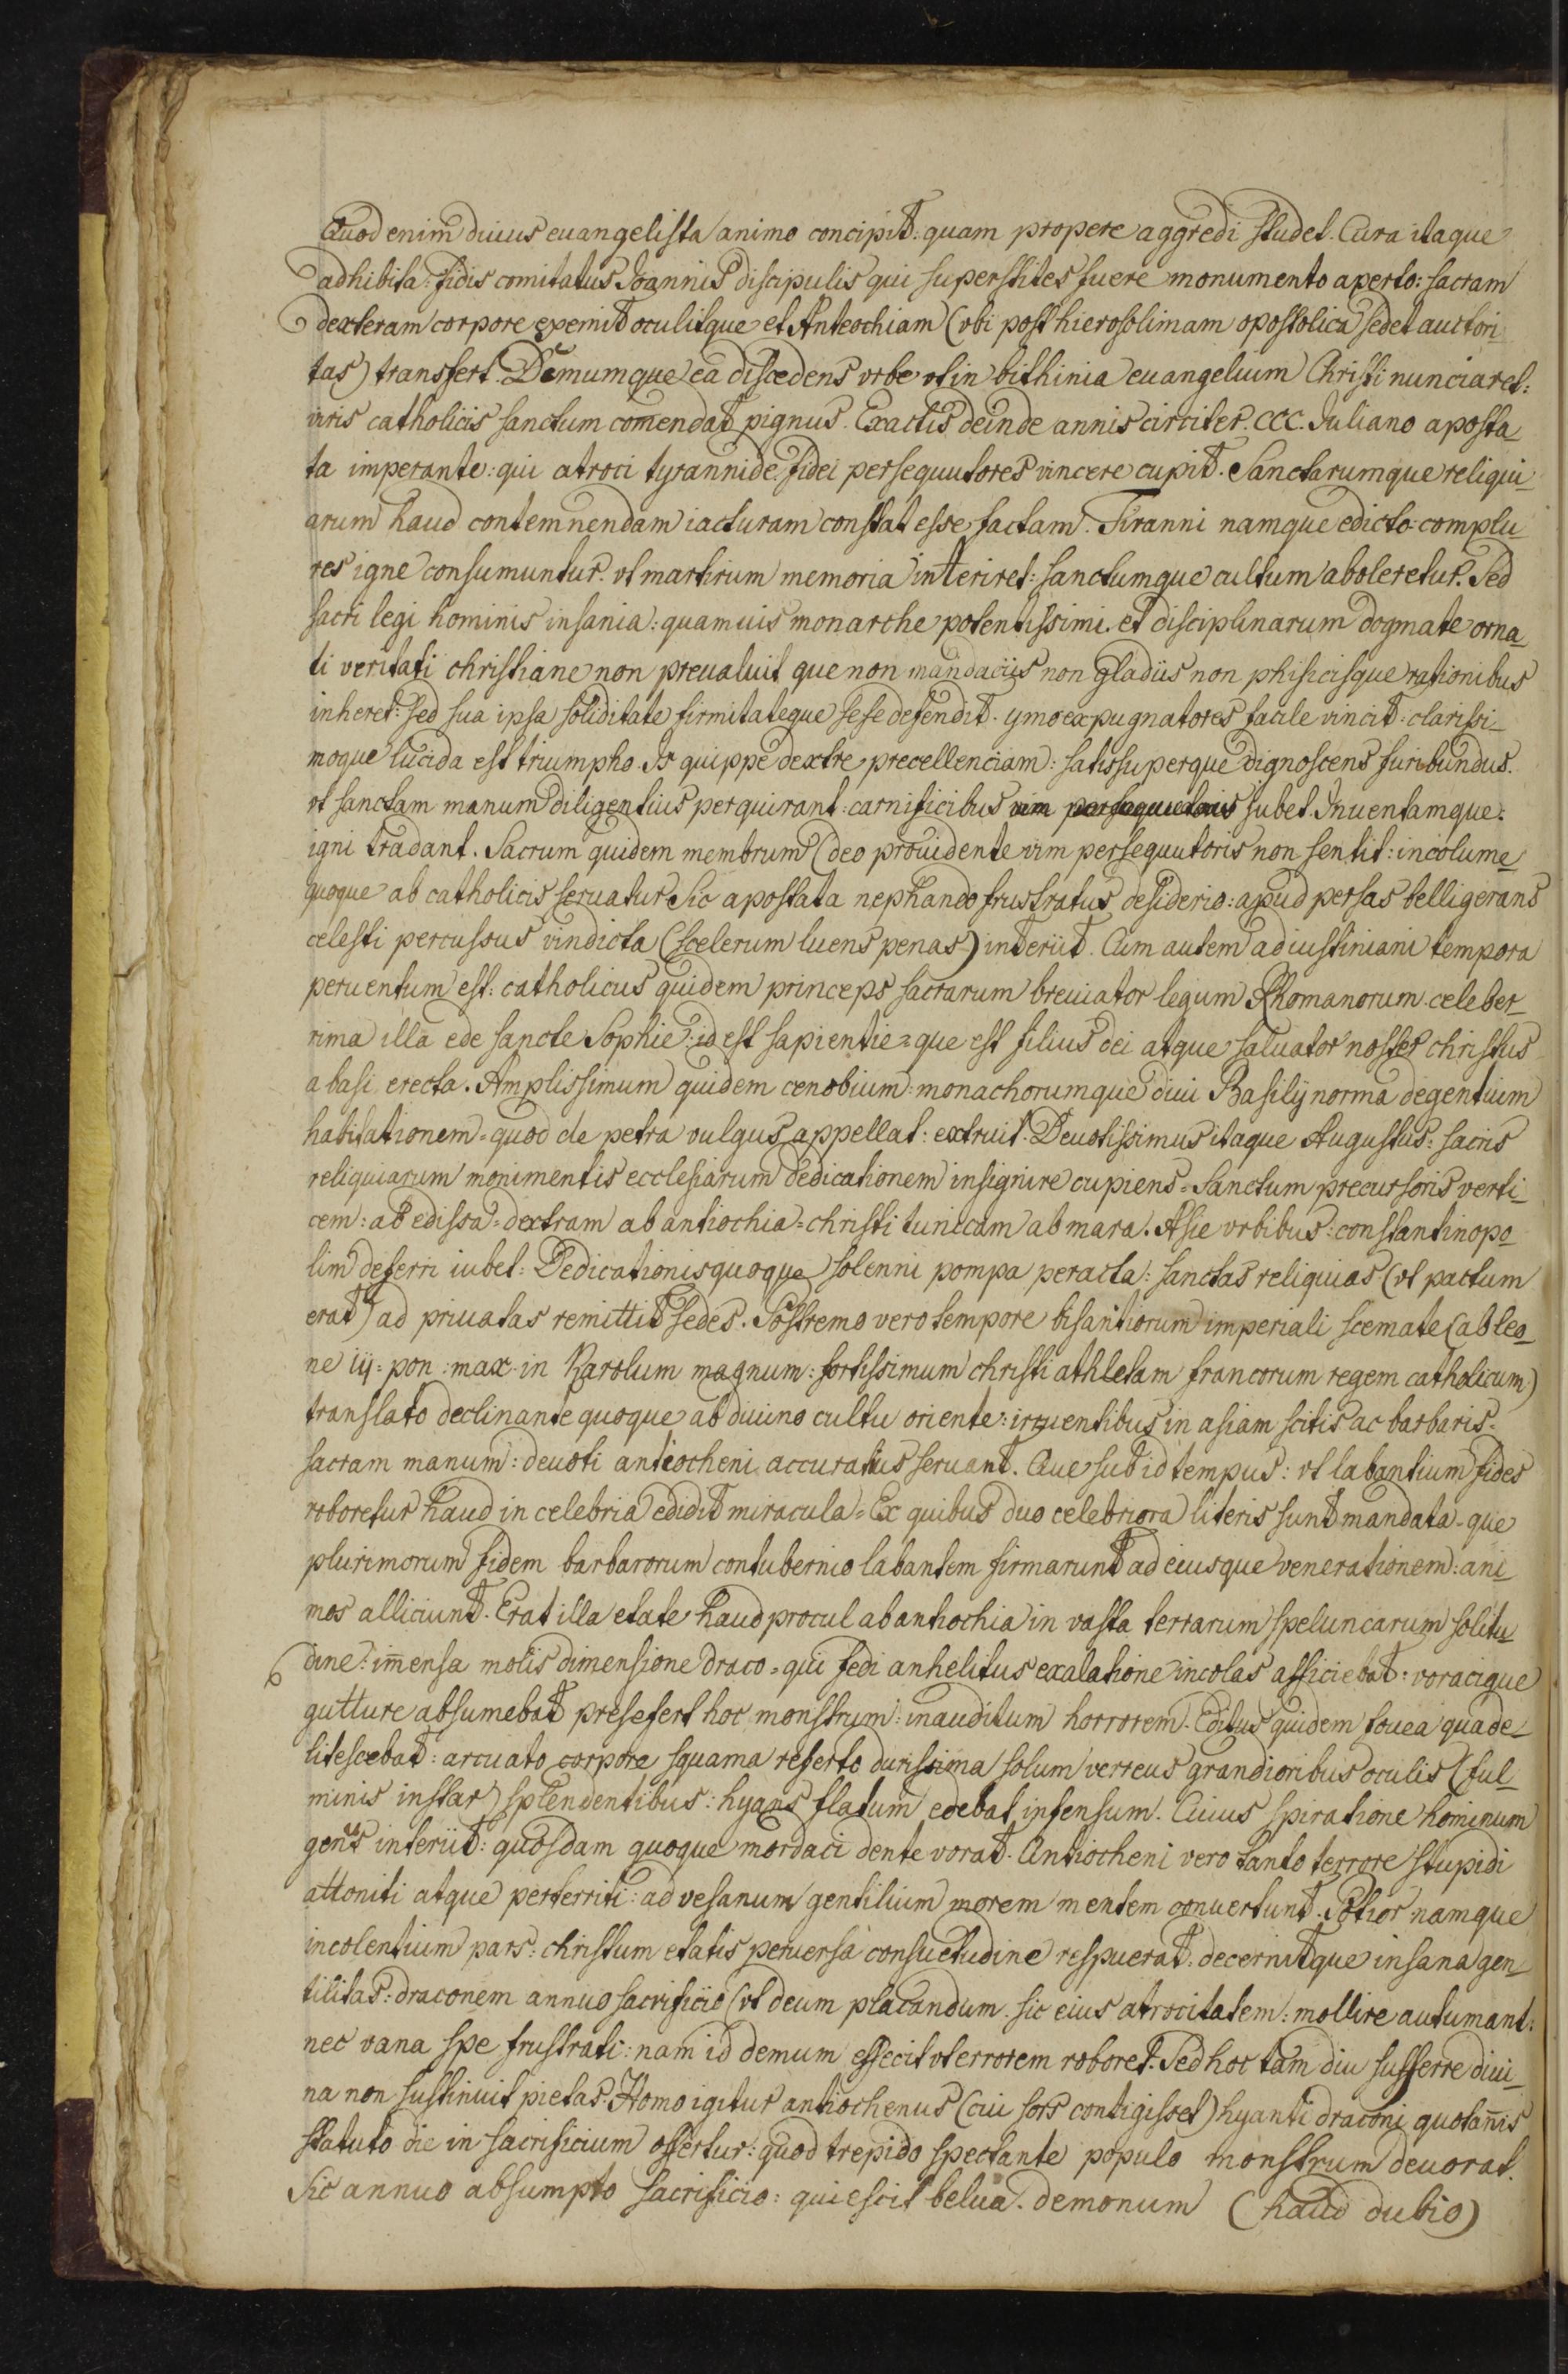 Quod enim diuus euangelista animo concipit: quam propere aggredi studet. Cura itaque
adhibita: fidis comitatus Joannis discipulis qui superstites fuere monumento aperto: sacram
dexteram corpore exemit oculitque et Anteochiam (vbi post hierosolimam opostolica sedet auctori
tas) transfert. Demumque ea discedens vrbe vt in bithinia euangelium Christi nunciaret:
viris catholicis sanctum comendat pignus. Exactis deinde annis circiter. CCC. Juliano aposta_
ta imperante: qui atroci tyrannide fidei persequutores vincere cupit. Sanctarumque reliqui_
arum haud contemnendam iacturam constat esse factam. Tiranni namque edicto complu_
res igne consumuntur. vt martirum memoria interiret: sanctumque cultum aboleretur. Sed
sacri legi hominis insania: quamuis monarche potentissimi. et disciplinarum dogmate orna_
ti veritati christiane non preualuit que non mandaciis non gladiis non phisicisque rationibus
inheret: sed sua ipsa soliditate firmitateque sese defendit. ymo expugnatores facile vincit. clarissi_
moque lucida est triumpho. Is quippe dextre precellenciam: satis superque dignoscens furibundus.
vt sanctam manum diligentius perquirant: carnificibus vim persequutoris jubet. Inuentamque:
igni tradant. Sacrum quidem membrum (deo prouidente vim persequutoris non sentit: incolume
quoque ab catholicis seruatur. Sic apostata nephando frustratus desiderio: apud persas belligerans
celesti percussus vindicta (scelerum luens penas) interiit. Cum autem ad iustiniani tempora
peruentum est: catholicus quidem princeps sacrarum breuiator legum Rhomanorum. celeber_
rima illa ede sancte Sophie: id est sapientie= que est filius dei atque saluator noster christus
a basi erecta. Amplissimum quidem cenobium: monachorumque diui Basilij norma degentium
habitationem= quod de petra vulgus appellat: extruit. Deuotissimus itaque Augustus: sacris
reliquiarum monimentis ecclesiarum dedicationem insignire cupiens= Sanctum precursoris verti_
cem: ab edissa= dextram ab antiochia= christi tunicam ab mara. Asie vrbibus: constantinopo_
lim deferri iubet: Dedicationisquoque solenni pompa peracta: sanctas reliquias (vt pactum
erat) ad priuatas remittit sedes. Postremo vero tempore bisantiorum imperiali scemate (ab leo_
ne iij= pon: max. in Karolum magnum: fortissimum christi athletam francorum regem catholicum)
translato declinante quoque ab diuino cultu oriente: irruentibus in asiam scitis ac barbaris.
sacram manum: deuoti antiocheni accuratius seruant. Que sub id tempus: vt labantium fides
roboretur haud in celebria edidit miracula= Ex quibus duo celebriora literis sunt mandata= que
plurimorum fidem barbarorum contubernio labantem firmarunt ad eiusque venerationem: ani_
mos alliciunt. Erat illa etate haud procul ab antiochia in vasta terrarum speluncarum solitu_
dine: im̄ensa molis dimensione draco= qui fedi anhelitus exalatione incolas afficiebat: voracique
gutture absumebat presefert hoc monstrum: inauditum horrorem. Editus quidem fouea qua de_
litescebat: arcuato corpore squama referto durissima solum verreus grandioribus oculis (ful_
minis instar) splendentibus: hyans flatum edebat infensum. Cuius spiratione hominum
genus interiit: quosdam quoque mordaci dente vorat. Antiocheni vero tanto terrore stupidi
attoniti atque perterriti: ad vesanum gentilium morem mentem conuertunt. Potior namque
incolentium pars: christum etatis peruersa consuetudine respuerat. decernitque insana gen_
tilitas: draconem annuo sacrificio (vt deum placandum. sic eius atrocitatem: mollire autumant:
nec vana spe frustrati: nam id demum effecit vt errorem roboret. Sed hoc tam diu sufferre diui_
na non sustinuit pietas. Homo igitur antiochenus (cui sors contigisset) hyanti draconi quotan̄is
statuto die in sacrificium offertur: quod trepido spectante populo monstrum deuorat.
Sic annuo absumpto sacrificio: quiescit belua. demonum (haud dubio)